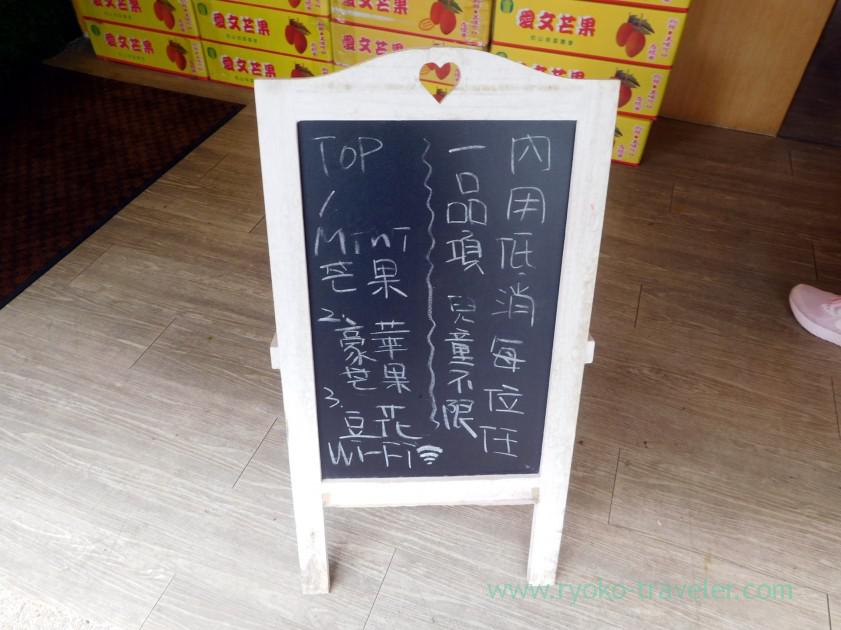 愛文芒果
愛文芒果
愛文芒果
內用低消每位任
一品項 兒童不限
TOP
1
MInT
芒果
2. 豪華
芒果
3. 豆花
Wi-Fi
www.ryoko-traveler.com